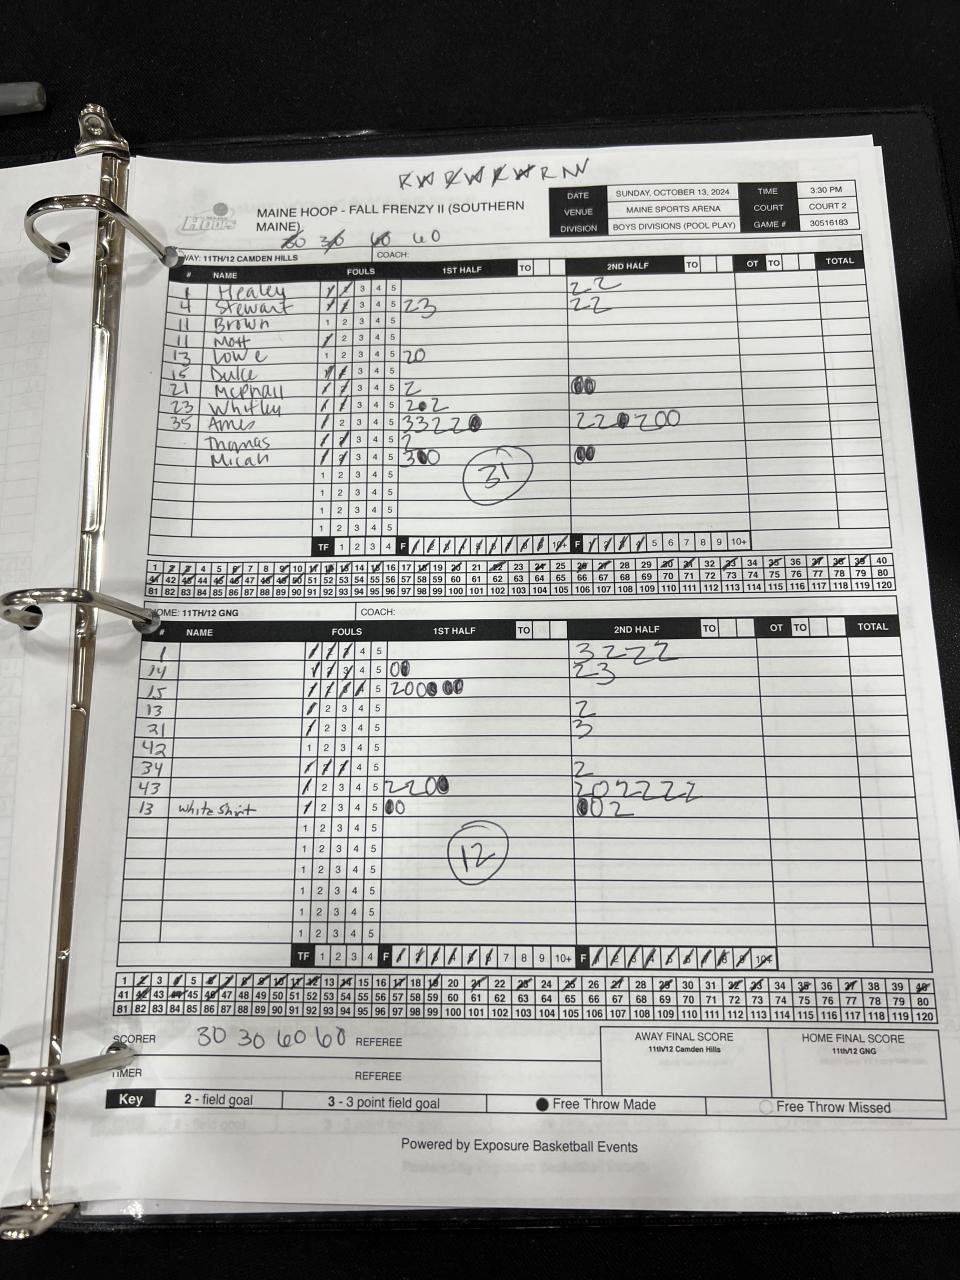 RWRWRWRW
DATE SUNDAY, OCTOBER 13, 2024 TIME 3:30 PM
VENUE MAINE SPORTS ARENA COURT COURT 2
DIVISION BOYS DIVISIONS (POOL PLAY) GAME # 30516183
HOOPS
MAINE HOOP - FALL FRENZY II (SOUTHERN
MAINE)
30 30 60 60
WAY: 11TH/12 CAMDEN HILLS COACH:
# NAME FOULS 1ST HALF TO 2ND HALF TO OT TO TOTAL
1 Healey 1 2 3 4 5 22
4 Stewart 1 2 3 4 5 23 22
11 Brown 1 2 3 4 5
11 Mott 1 2 3 4 5
13 Lowe 1 2 3 4 5 20
15 Dulce 1 2 3 4 5
21 McPhail 1 2 3 4 5 2 ●●
23 Whitley 1 2 3 4 5 2●2
35 Ames 1 2 3 4 5 3322● 22●200
Thomas 1 2 3 4 5 2
Micah 1 2 3 4 5 3●0 ●●
31
1 2 3 4 5
1 2 3 4 5
1 2 3 4 5
1 2 3 4 5
TF 1 2 3 4 F 1 2 3 4 5 6 7 8 9 10+ F 1 2 3 4 5 6 7 8 9 10+
1 2 3 4 5 6 7 8 9 10 11 12 13 14 15 16 17 18 19 20 21 22 23 24 25 26 27 28 29 30 31 32 33 34 35 36 37 38 39 40
41 42 43 44 45 46 47 48 49 50 51 52 53 54 55 56 57 58 59 60 61 62 63 64 65 66 67 68 69 70 71 72 73 74 75 76 77 78 79 80
81 82 83 84 85 86 87 88 89 90 91 92 93 94 95 96 97 98 99 100 101 102 103 104 105 106 107 108 109 110 111 112 113 114 115 116 117 118 119 120
OME: 11TH/12 GNG COACH:
# NAME FOULS 1ST HALF TO 2ND HALF TO OT TO TOTAL
1 1 2 3 4 5 3222
14 1 2 3 4 5 0● 23
15 1 2 3 4 5 200●●●
13 1 2 3 4 5 2
31 1 2 3 4 5 3
42 1 2 3 4 5
34 1 2 3 4 5 2
43 1 2 3 4 5 220● 202222
13 White Shirt 1 2 3 4 5 ●0 ●02
1 2 3 4 5
1 2 3 4 5
12
1 2 3 4 5
1 2 3 4 5
1 2 3 4 5
1 2 3 4 5
TF 1 2 3 4 F 1 2 3 4 5 6 7 8 9 10+ F 1 2 3 4 5 6 7 8 9 10+
1 2 3 4 5 6 7 8 9 10 11 12 13 14 15 16 17 18 19 20 21 22 23 24 25 26 27 28 29 30 31 32 33 34 35 36 37 38 39 40
41 42 43 44 45 46 47 48 49 50 51 52 53 54 55 56 57 58 59 60 61 62 63 64 65 66 67 68 69 70 71 72 73 74 75 76 77 78 79 80
81 82 83 84 85 86 87 88 89 90 91 92 93 94 95 96 97 98 99 100 101 102 103 104 105 106 107 108 109 110 111 112 113 114 115 116 117 118 119 120
SCORER 30 30 60 60 REFEREE
AWAY FINAL SCORE HOME FINAL SCORE
11th/12 Camden Hills 11th/12 GNG
TIMER REFEREE
Key 2 - field goal 3 - 3 point field goal Free Throw Made Free Throw Missed
Powered by Exposure Basketball Events